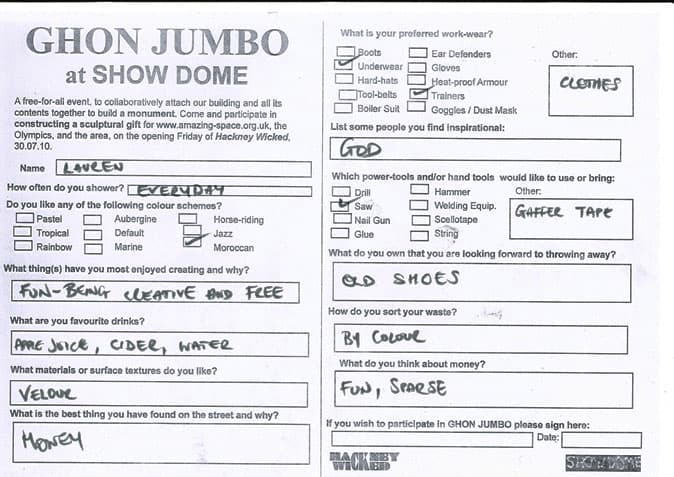 GHON JUMBO
at SHOW DOME
A free-for-all event, to collaboratively attach our building and all its
contents together to build a monument. Come and participate in
constructing a sculptural gift for www.amazing-space.org.uk, the
Olympics, and the area, on the opening Friday of Hackney Wicked,
30.07.10.
Name LAUREN
How often do you shower? EVERYDAY
Do you like any of the following colour schemes?
Pastel Aubergine Horse-riding
Tropical Default Jazz
Rainbow Marine Moroccan
What thing(s) have you most enjoyed creating and why?
FUN-BEING CREATIVE AND FREE
What are you favourite drinks?
APPLE JUICE, CIDER, WATER
What materials or surface textures do you like?
VELOUR
What is the best thing you have found on the street and why?
MONEY
What is your preferred work-wear?
Boots Ear Defenders Other:
Underwear Gloves
Hard-hats Heat-proof Armour CLOTHES
Tool-belts Trainers
Boiler Suit Goggles / Dust Mask
List some people you find inspirational:
GOD
Which power-tools and/or hand tools would like to use or bring:
Drill Hammer Other:
Saw Welding Equip. GAFFER TAPE
Nail Gun Scellotape
Glue String
What do you own that you are looking forward to throwing away?
OLD SHOES
How do you sort your waste?
BY COLOUR
What do you think about money?
FUN, SPARSE
If you wish to participate in GHON JUMBO please sign here:
Date:
HACKNEY
WICKED
SHOWDOME